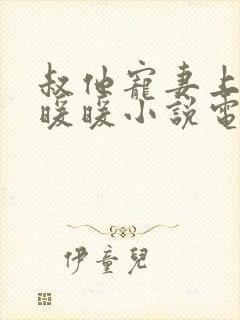 叔他寵妻上
暖暖小說電
伊童兒